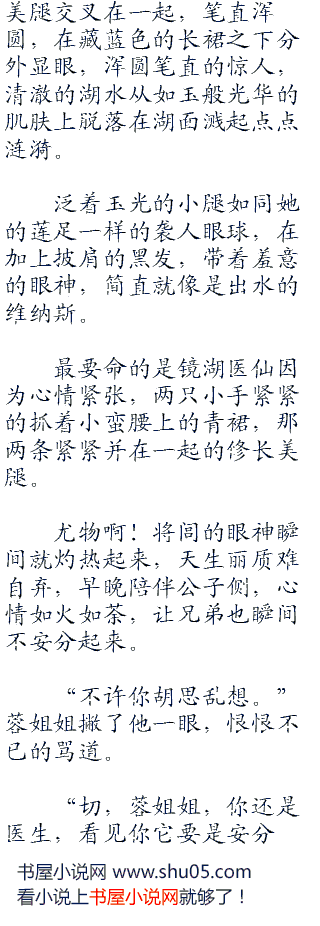 美腿交叉在一起，笔直浑
圆，在藏蓝色的长裙之下分
外显眼，浑圆笔直的惊人，
清澈的湖水从如玉般光华的
肌肤上脱落在湖面溅起点点
涟漪。
泛着玉光的小腿如同她
的莲足一样的袭人眼球，在
加上披肩的黑发，带着羞意
的眼神，简直就像是出水的
维纳斯。
最要命的是镜湖医仙因
为心情紧张，两只小手紧紧
的抓着小蛮腰上的青裙，那
两条紧紧并在一起的修长美
腿。
尤物啊！将闾的眼神瞬
间就灼热起来，天生丽质难
自弃，早晚陪伴公子侧，心
情如火如荼，让兄弟也瞬间
不安分起来。
“不许你胡思乱想。”
蓉姐姐撇了他一眼，恨恨不
已的骂道。
“切，蓉姐姐，你还是
医生，看见你它要是安分
书屋小说网 www.shu05.com
看小说上书屋小说网就够了！